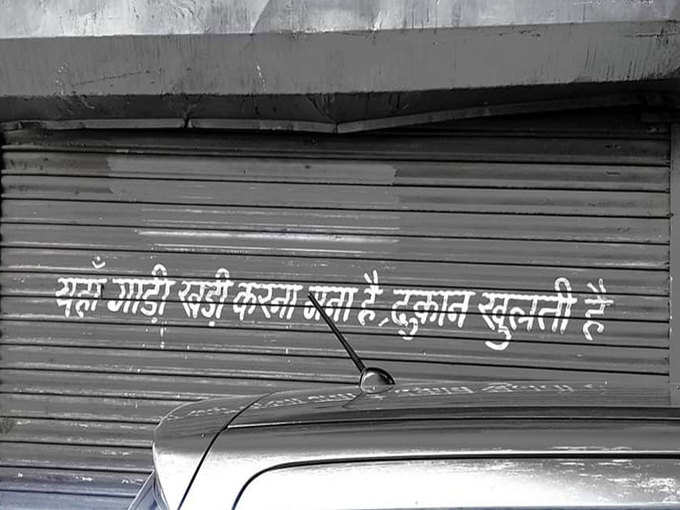 यहाँ गाड़ी खड़ी करना मना है, दुकान खुलती है